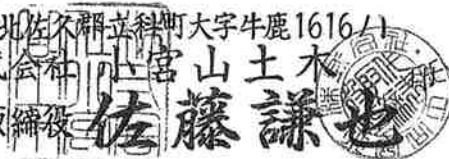 北佐久郡立科町大字牛鹿1616/1
式会社 小宮山土木
取締役 佐藤謙也